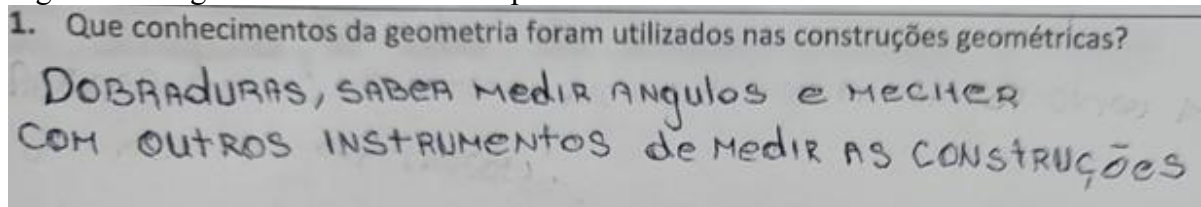 1. Que conhecimentos da geometria foram utilizados nas construções geométricas?
DOBRAdURAS, SABER MedIR ANgulos e MECHER
COM OUtROS INStRUMeNtOS de MedIR AS CONStRUÇões